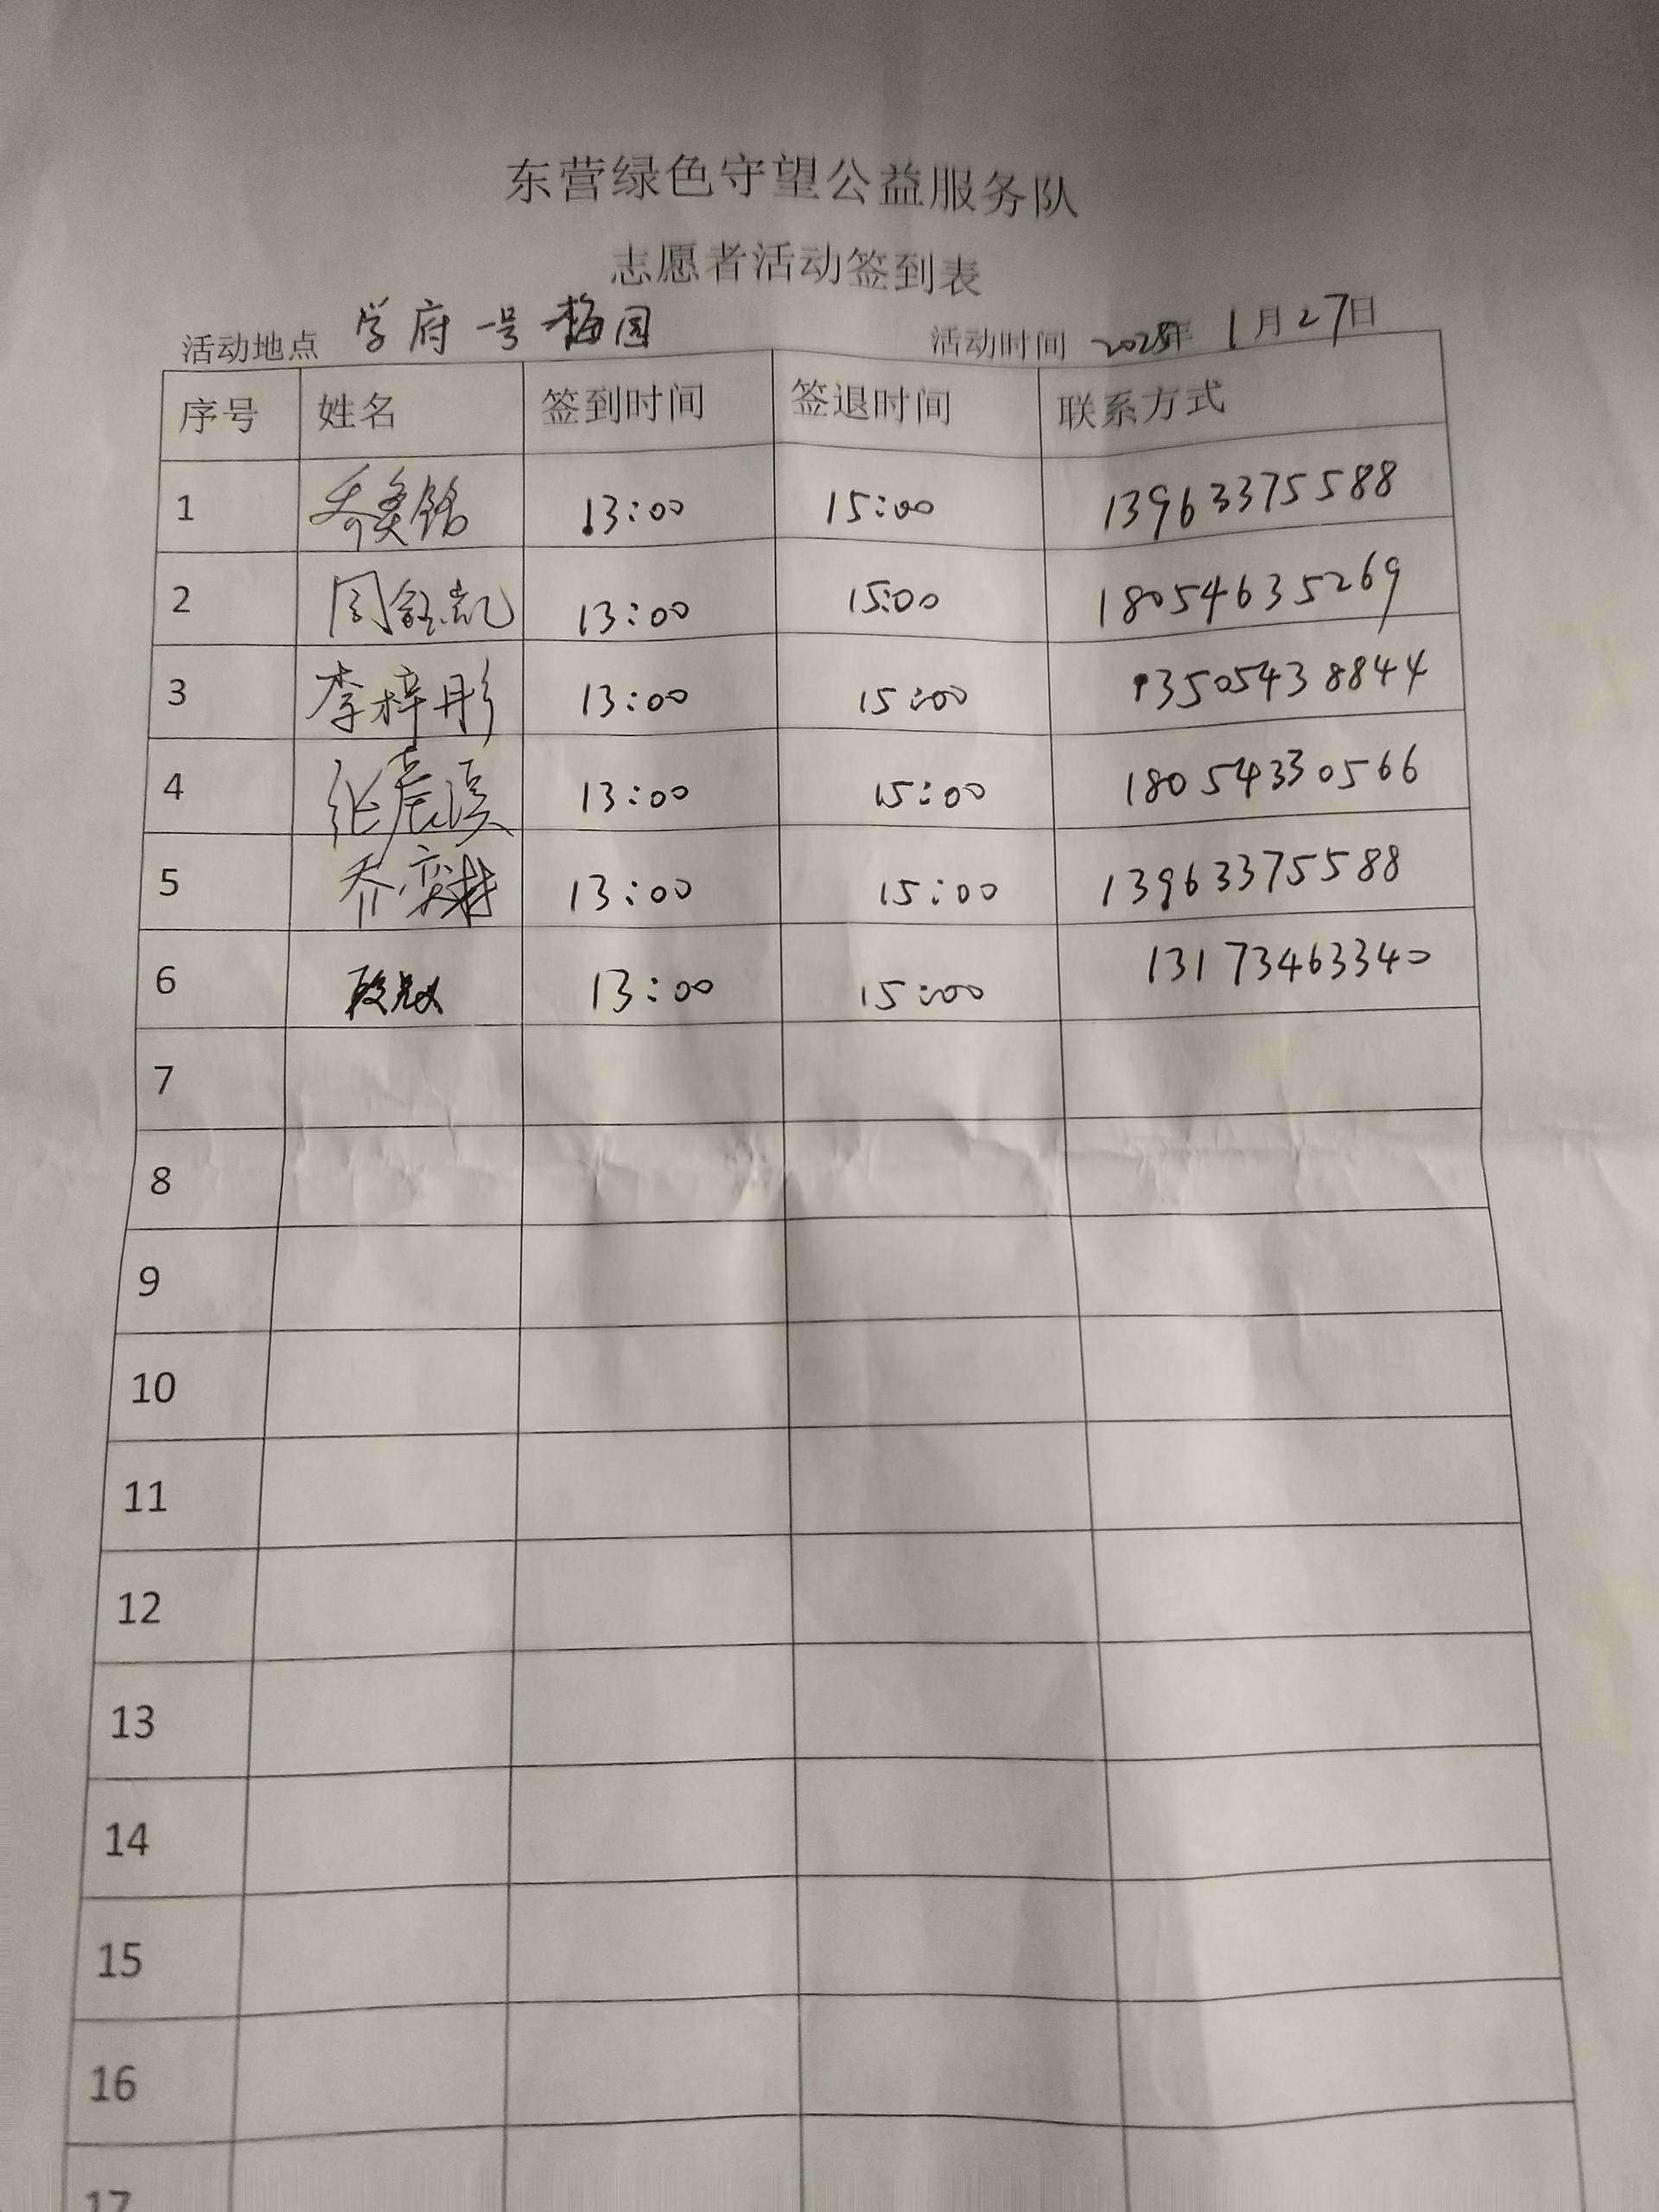 东营绿色守望公益服务队
志愿者活动签到表
活动地点 学府一号梅园 活动时间 2025年1月27日
序号 姓名 签到时间 签退时间 联系方式
1 13:00 15:00 13963375588
2 13:00 15:00 18054635269
3 李梓彤 13:00 15:00 13505438844
4 13:00 15:00 18054330566
5 13:00 15:00 13963375588
6 13:00 15:00 13173463340
7
8
9
10
11
12
13
14
15
16
17